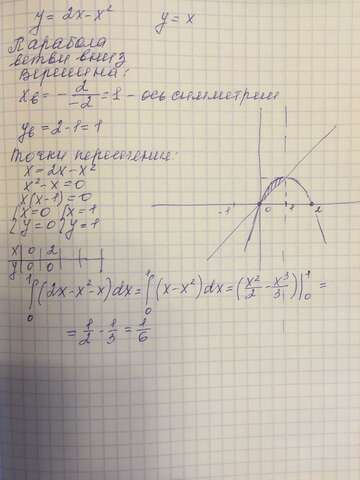 y = 2x - x² y = x
Парабола
ветви вниз
вершина:
xв = - 2/-2 = 1 - ось симметрии
yв = 2 - 1 = 1
Точки пересечение:
x = 2x - x²
x² - x = 0
x(x - 1) = 0
{x = 0 {x = 1
{y = 0 {y = 1
x | 0 | 2
y | 0 | 0
-1 0 1 2
∫₀¹ (2x - x² - x)dx = ∫₀¹ (x - x²)dx = (x²/2 - x³/3)|₀¹ =
= 1/2 - 1/3 = 1/6